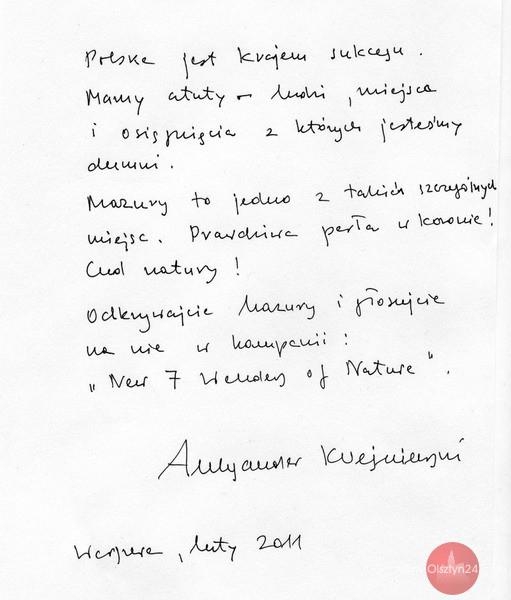 Polska jest krajem sukcesu.
Mamy atuty – ludzi, miejsca
i osiągnięcia z których jesteśmy
dumni.
Mazury to jedno z takich szczególnych
miejsc. Prawdziwa perła w koronie!
Cud natury!
Odkrywajcie Mazury i głosujcie
na nie w kampanii:
„New 7 Wonders of Nature".
Aleksander Kwaśniewski
Warszawa, luty 2011
Olsztyn24